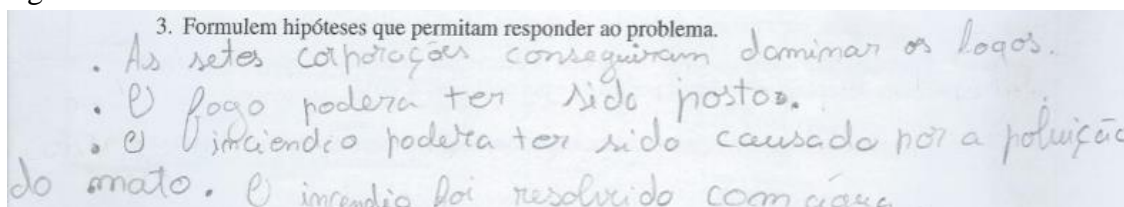 3. Formulem hipóteses que permitam responder ao problema.
. As setes corporações conseguiram dominar os fogos.
. O fogo podera ter sido postos.
. O inciendio podera ter sido causado por a poluição
do mato. O incendio foi resolvido com água